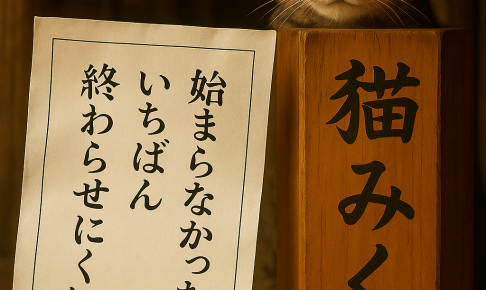 始まらなかった
いちばん
終わらせにく
猫みく